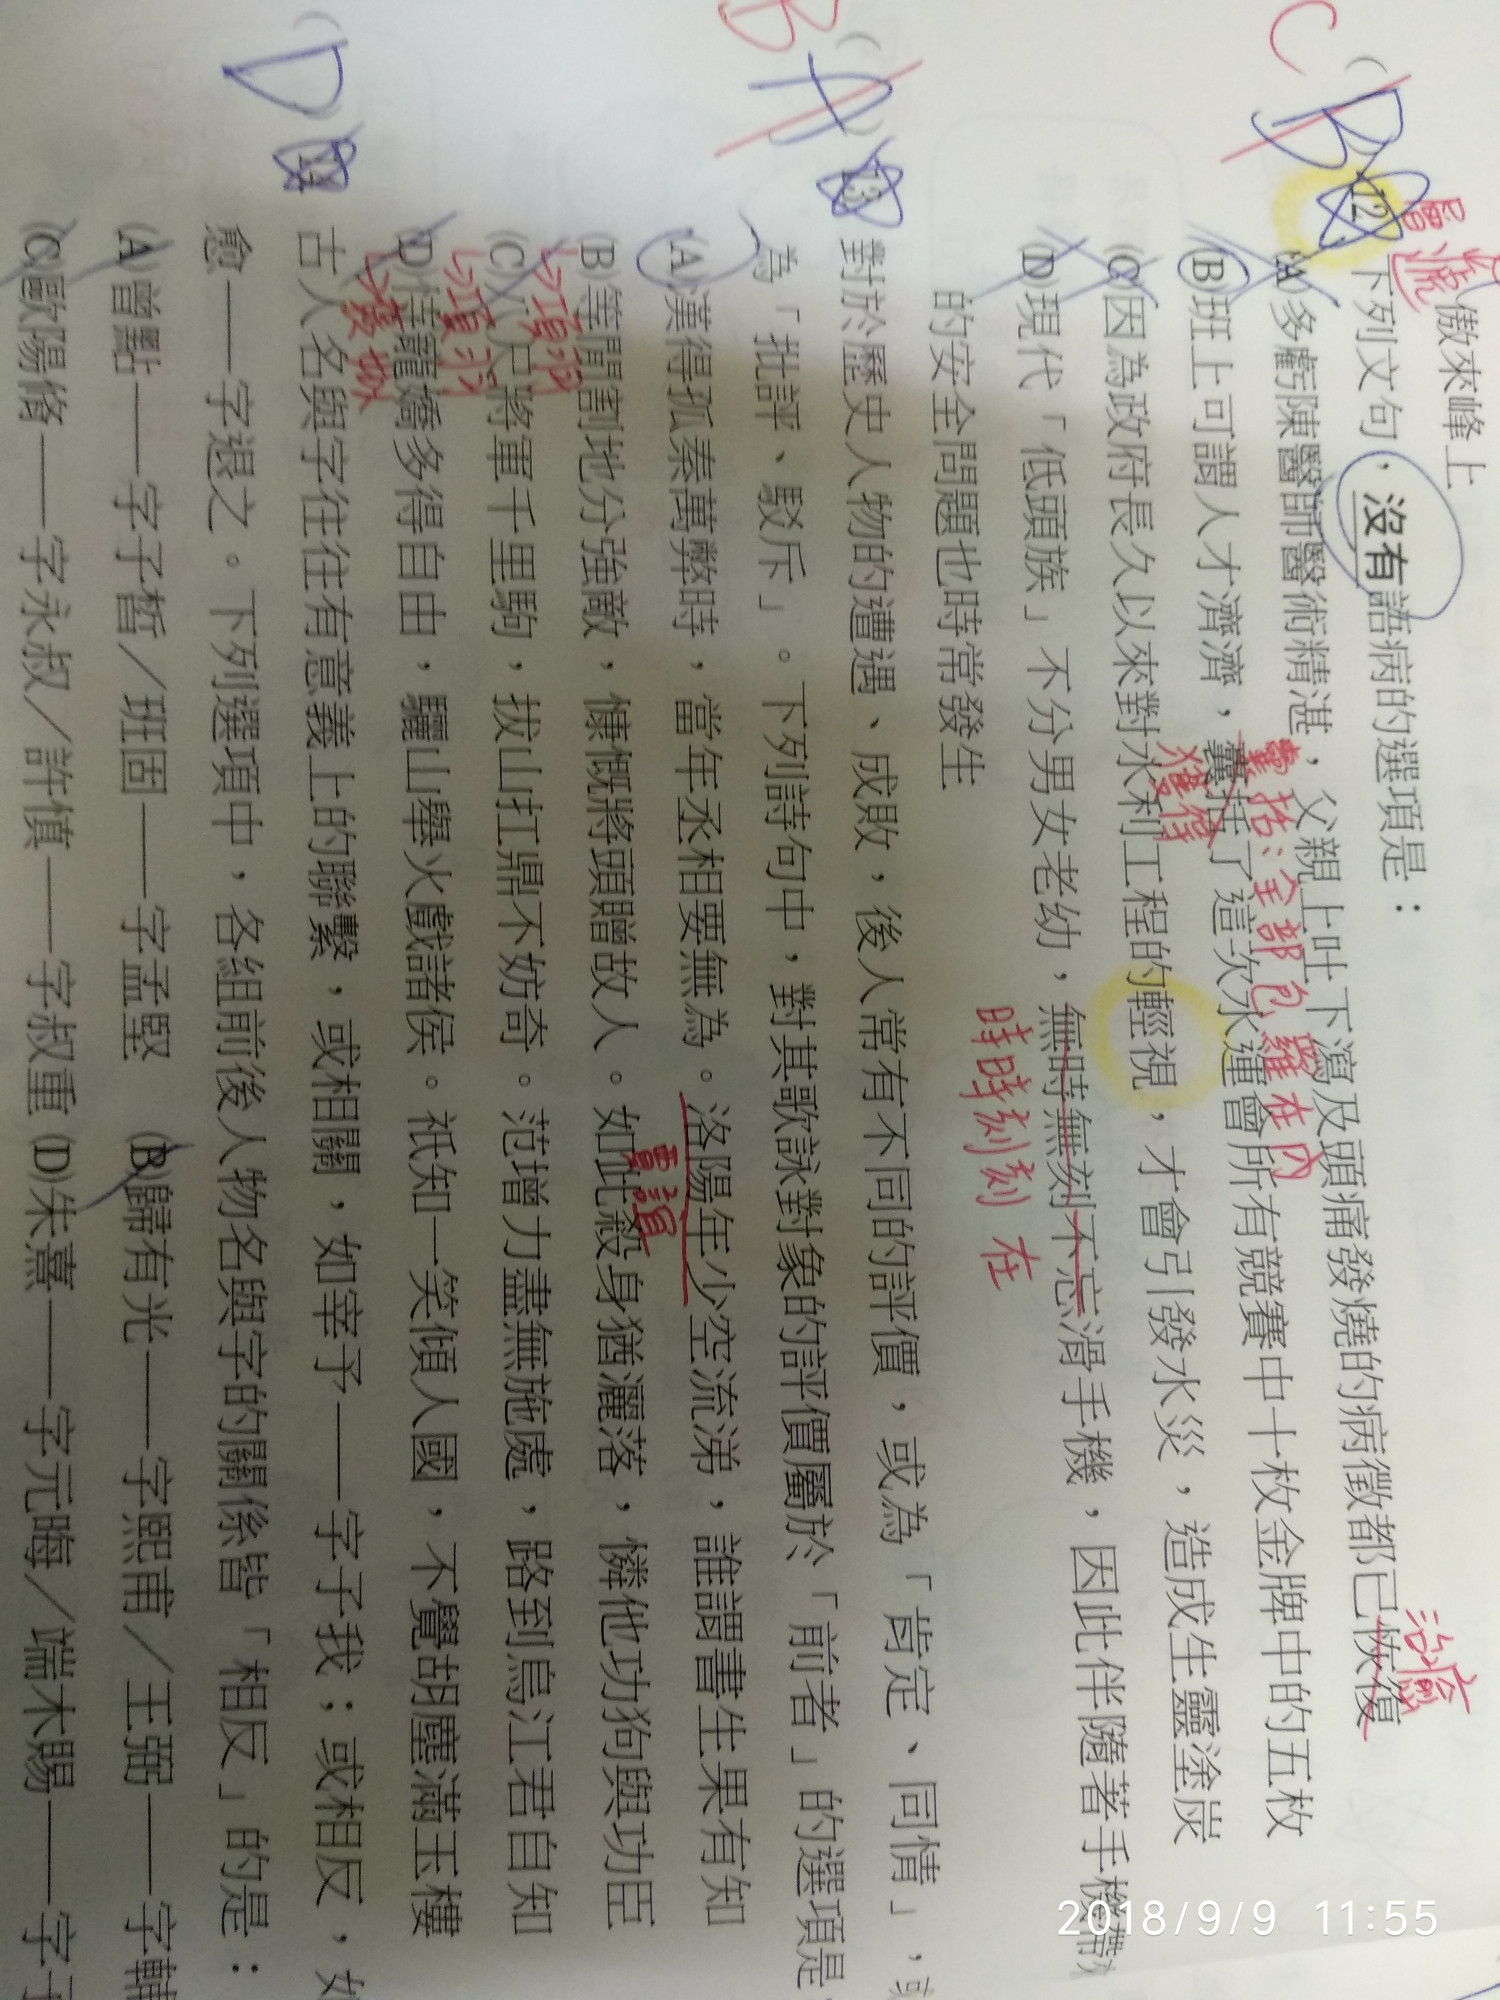 傲來峰上
屬遞
C
B
12.下列文句，沒有語病的選項是：
(A)多虧陳醫師醫術精湛，父親上吐下瀉及頭痛發燒的病徵都已恢復
治癒
囊括：全部包羅在內
(B)班上可謂人才濟濟，囊括了這次水運會所有競賽中十枚金牌中的五枚
獲得
(C)因為政府長久以來對水利工程的輕視，才會引發水災，造成生靈塗炭
(D)現代「低頭族」不分男女老幼，無時無刻不忘滑手機，因此伴隨著手機帶
時時刻刻在
的安全問題也時常發生
B
A
13.對於歷史人物的遭遇、成敗，後人常有不同的評價，或為「肯定、同情」，或
為「批評、駁斥」。下列詩句中，對其歌詠對象的評價屬於「前者」的選項是
(A)漢得孤秦萬弊時，當年丞相要無為。洛陽年少空流涕，誰謂書生果有知
賈誼
(B)等閒割地分強敵，慷慨將頭贈故人。如此殺身猶灑落，憐他功狗與功臣
→項羽
(C)八尺將軍千里騅，拔山扛鼎不妨奇。范增力盡無施處，路到烏江君自知
→項羽
(D)恃寵嬌多得自由，驪山舉火戲諸侯。祇知一笑傾人國，不覺胡塵滿玉樓
→褒姒
D
14.古人名與字往往有意義上的聯繫，或相關，如宰予——字子我；或相反，如
愈——字退之。下列選項中，各組前後人物名與字的關係皆「相反」的是：
(A)曾點——字子晳／班固——字孟堅 (B)歸有光——字熙甫／王弼——字輔
(C)歐陽脩——字永叔／許慎——字叔重 (D)朱熹——字元晦／端木賜——字子
2018/9/9 11:55